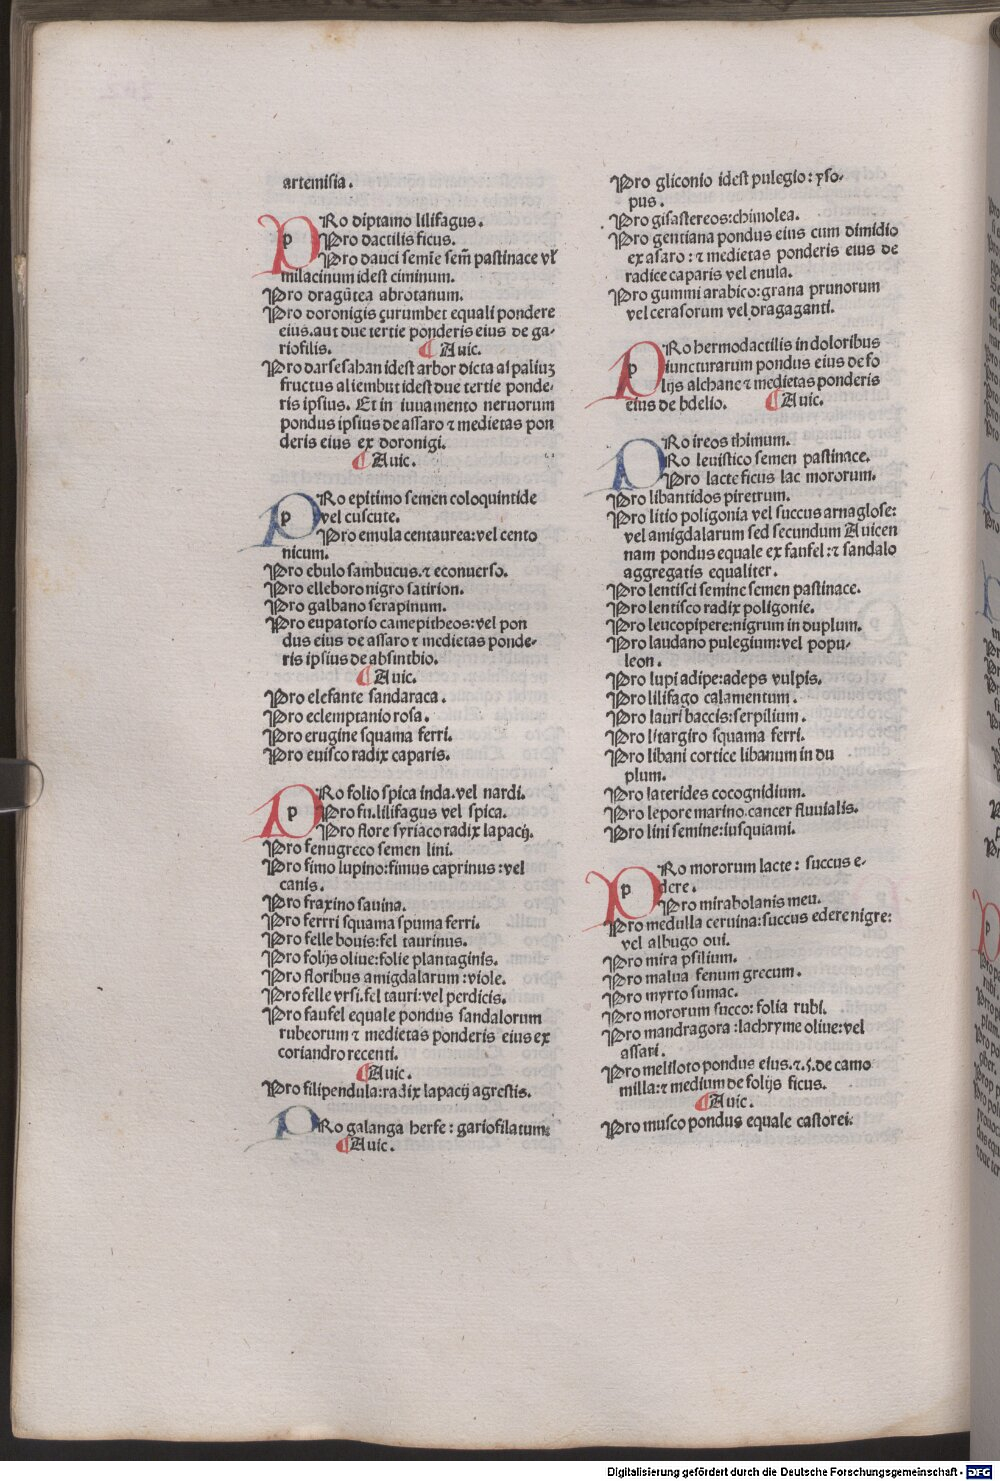 artemisia.
PRo diptamo lilifagus.
Pro dactilis ficus.
Pro dauci semĩe sem̃ pastinace vł
milacinum idest ciminum.
Pro dragũtea abrotanum.
Pro doronigis çurumbet equali pondere
eius.aut due tertie ponderis eius de ga-
riofilis. Auic.
Pro darsesahan idest arbor dicta alpaliuʒ
fructus aliembut idest due tertie ponde-
ris ipsius. Et in iuuamento neruorum
pondus ipsius de assaro ⁊ medietas pon
deris eius ex doronigi.
Auic.
PRo epitimo semen coloquintide
vel cuscute.
Pro emula centaurea:vel cento
nicum.
Pro ebulo sambucus.⁊ econuerso.
Pro elleboro nigro satirion.
Pro galbano serapinum.
Pro eupatorio camepitheos:vel pon
dus eius de assaro ⁊ medietas ponde-
ris ipsius de absinthio.
Auic.
Pro elefante sandaraca.
Pro eclemptanio rosa.
Pro erugine squama ferri.
Pro euisco radix caparis.
PRo folio spica inda.vel nardi.
Pro fu.lilifagus vel spica.
Pro flore syriaco radix lapacij.
Pro fenugreco semen lini.
Pro fimo lupino:fimus caprinus:vel
canis.
Pro fraxino sauina.
Pro ferrri squama spuma ferri.
Pro felle bouis:fel taurinus.
Pro folijs oliue:folie plantaginis.
Pro floribus amigdalarum:viole.
Pro felle vrsi.fel tauri:vel perdicis.
Pro faufel equale pondus sandalorum
rubeorum ⁊ medietas ponderis eius ex
coriandro recenti.
Auic.
Pro filipendula:radix lapacij agrestis.
PRo galanga herfe:gariofilatum:
Auic.
Pro gliconio idest pulegio:yso-
pus.
Pro gisastereos:chimolea.
Pro gentiana pondus eius cum dimidio
ex asaro:⁊ medietas ponderis eius de
radice caparis vel enula.
Pro gummi arabico:grana prunorum
vel cerasorum vel dragaganti.
PRo hermodactilis in doloribus
iuncturarum pondus eius de fo
lijs alchane ⁊ medietas ponderis
eius de bdelio. Auic.
PRo ireos thimum.
Ro leuistico semen pastinace.
Pro lacte ficus lac mororum.
Pro libantidos piretrum.
Pro litio poligonia vel succus arnaglose:
vel amigdalarum sed secundum Auicen
nam pondus equale ex faufel:⁊ sandalo
aggregatis equaliter.
Pro lentisci semine semen pastinace.
Pro lentisco radix poligonie.
Pro leucopipere:nigrum in duplum.
Pro laudano pulegium:vel popu-
leon.
Pro lupi adipe:adeps vulpis.
Pro lilifago calamentum.
Pro lauri baccis:serpilium.
Pro litargiro squama ferri.
Pro libani cortice libanum in du
plum.
Pro laterides cocognidium.
Pro lepore marino.cancer fluuialis.
Pro lini semine:iusquiami.
PRo mororum lacte: succus e-
dere.
Pro mirabolanis meu.
Pro medulla ceruina:succus edere nigre:
vel albugo oui.
Pro mira psilium.
Pro malua fenum grecum.
Pro myrto sumac.
Pro mororum succo:folia rubi.
Pro mandragora:lachryme oliue:vel
assari.
Pro meliloto pondus eius.⁊.5.de camo
milla:⁊ medium de folijs ficus.
Auic.
Pro musco pondus equale castorei:
Digitalisierung gefördert durch die Deutsche Forschungsgemeinschaft - DFG